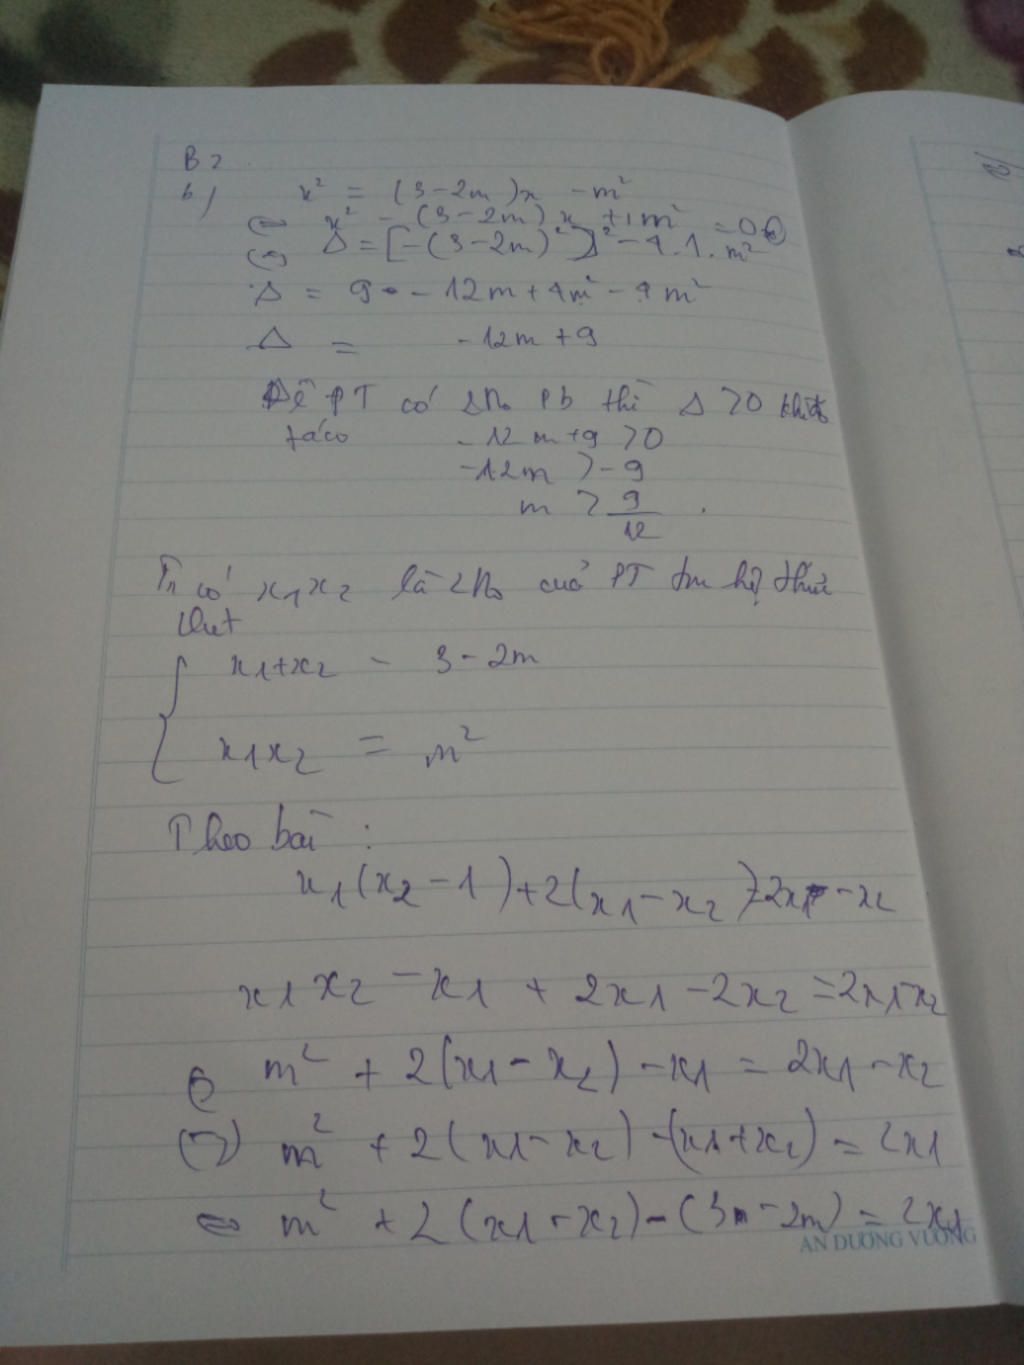 B2
b) x² = (3-2m)x - m²
⇔ x² - (3-2m)x + m² = 0
Δ = [-(3-2m)²]² - 4.1.m²
Δ = 9 - 12m + 4m² - 4m²
Δ = -12m + 9
Để PT có 2No Pb thì Δ > 0
ta có -12m + 9 > 0
-12m > -9
m > 9/12
có x1 x2 là 2No của PT hệ thức
Viet
x1 + x2 - 3 - 2m
x1x2 = m²
Theo bài :
x1(x2 - 1) + 2(x1 - x2) = 2x1 - x2
x1x2 - x1 + 2x1 - 2x2 = 2x1 - x2
m² + 2(x1 - x2) - x1 = 2x1 - x2
m² + 2(x1 - x2) - (x1 + x2) = 2x1
⇔ m² + 2(x1 - x2) - (3 - 2m) = 2x1
AN DƯƠNG VƯƠNG